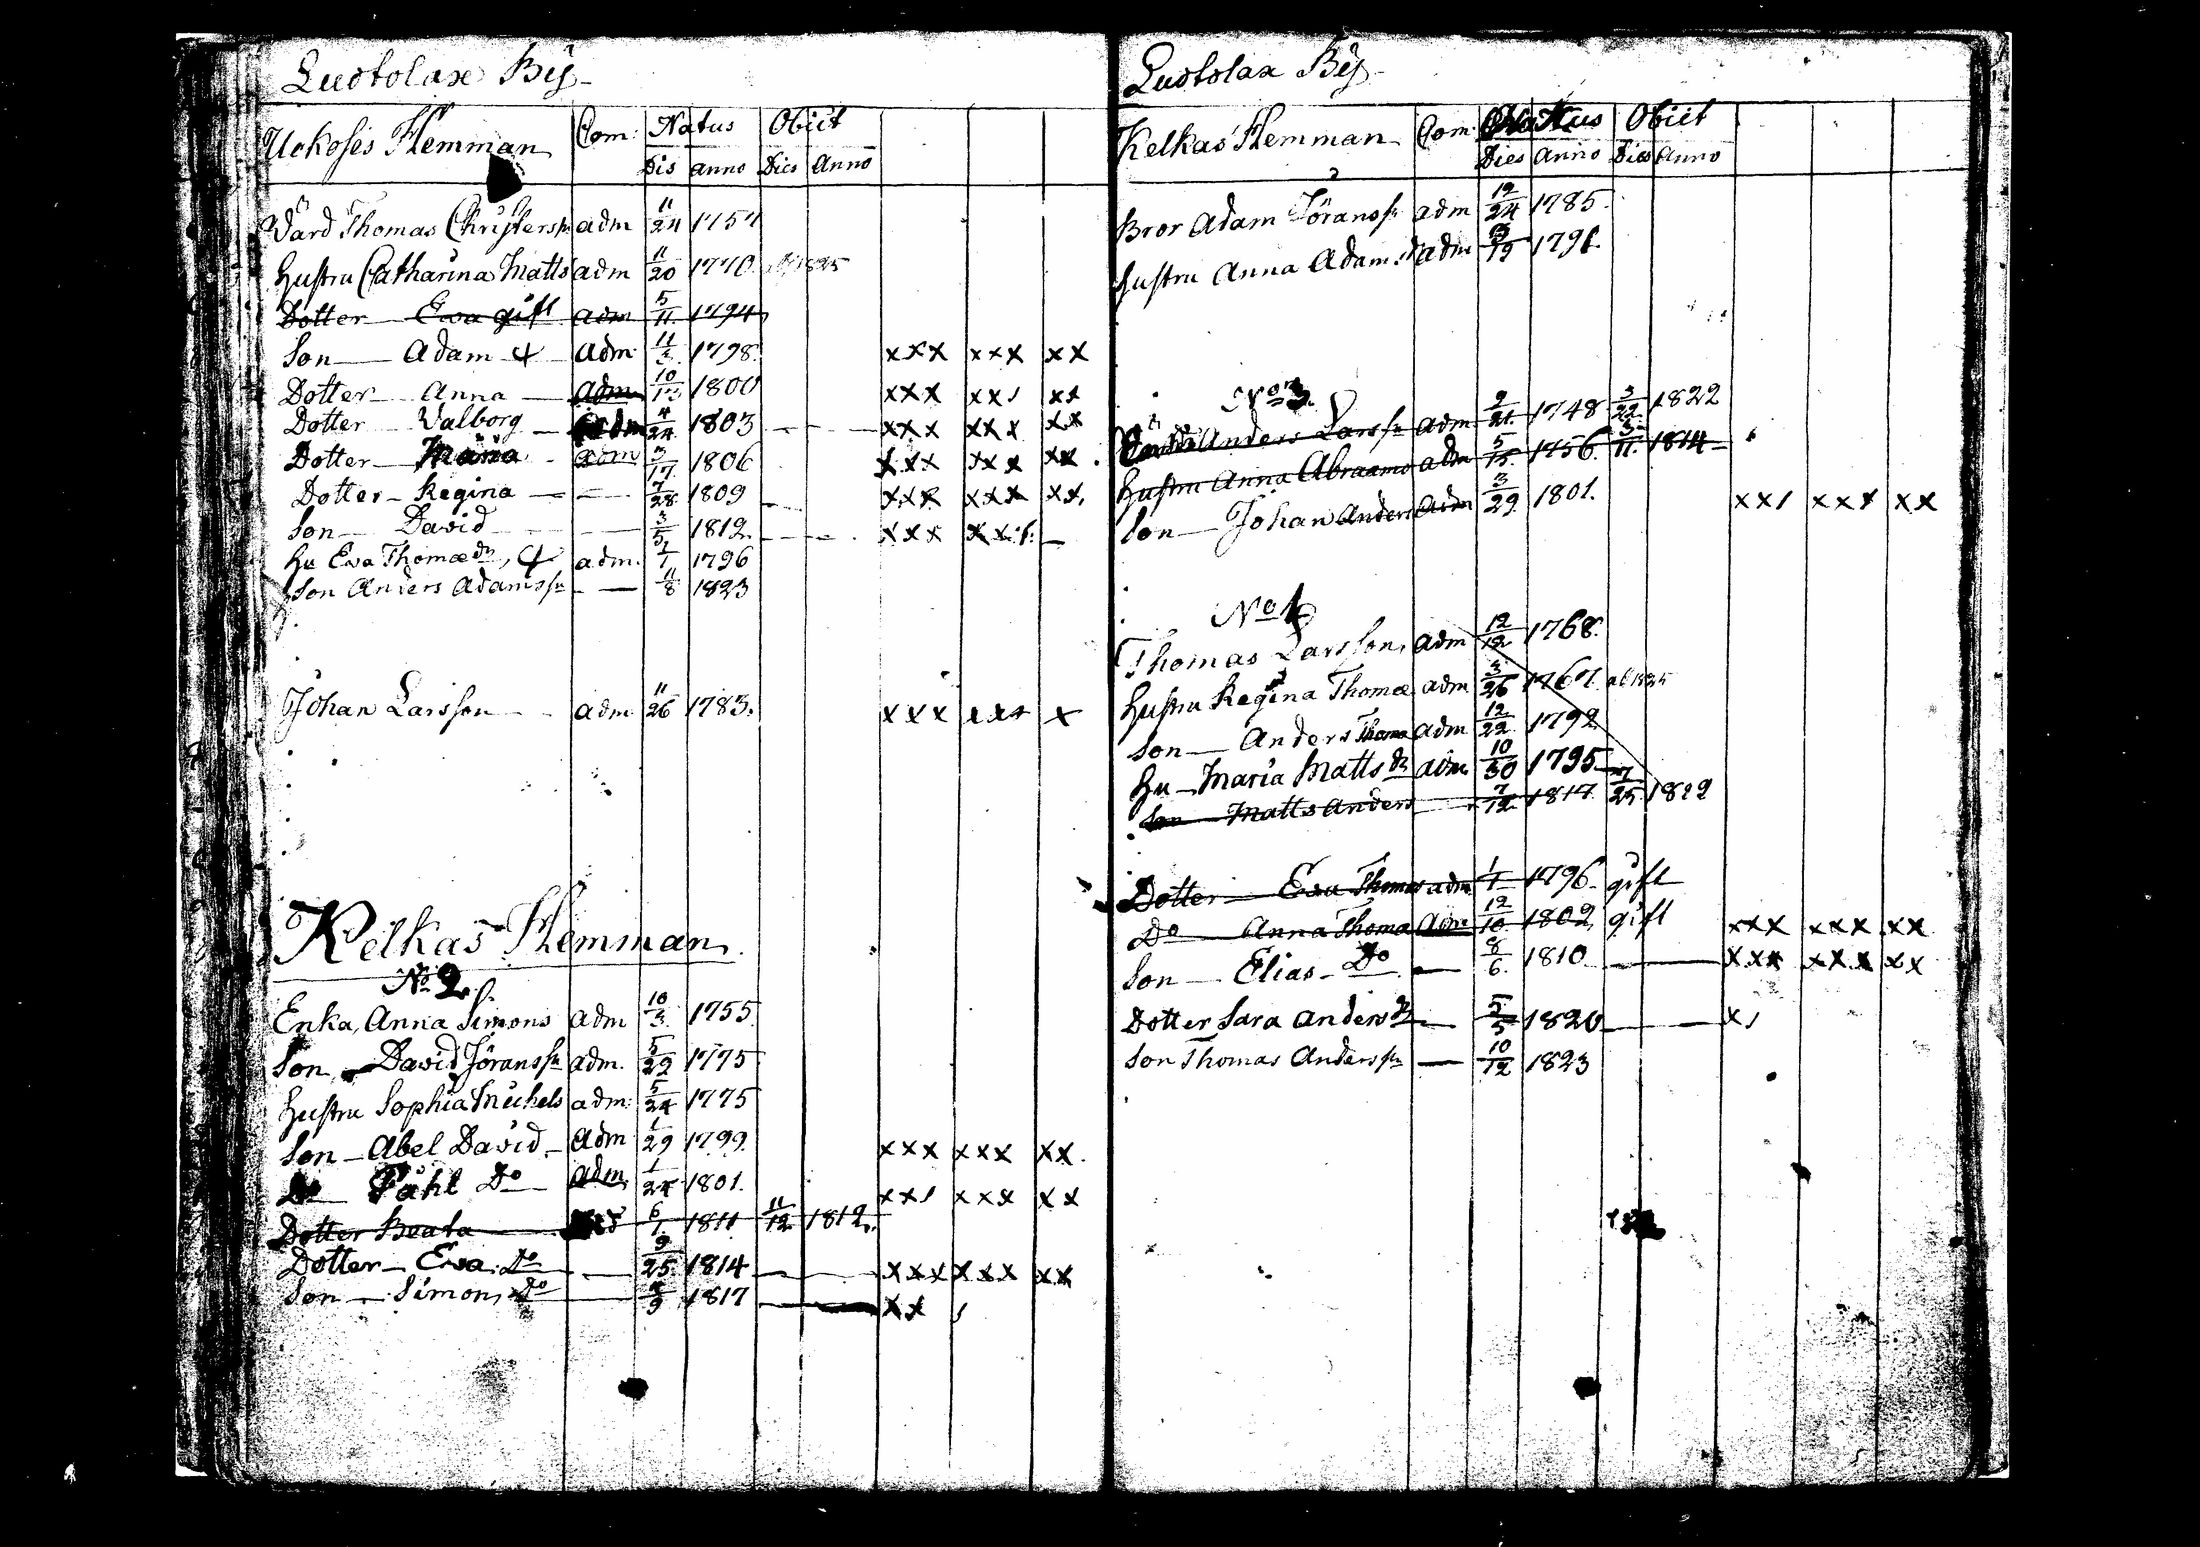 Ludtolax Bÿ
Uckoses Hemman Com: Natus Obiit
Dis anno Dies Anno
Vård Thomas Christerss adm 11/24 1757
Hustru Catharina Matts adm 11/20 1770 1825
Dotter Eva gift adm 5/11 1794
Son Adam adm 11/3 1798
Dotter Anna adm 10/13 1800
Dotter Valborg adm 4/24 1803
Dotter Maria adm 3/17 1806
Dotter Regina 7/28 1809
Son David 3/5 1812
Hu Eva Thomædr adm 1/1 1796
Son Anders Adamssn 11/8 1823
Johan Larsson adm 11/26 1783
Kelkas Hemman
No 2
Enka Anna Simons adm 10/3 1755
Son David Jöranssn adm 5/22 1775
Hustru Sophia Michels adm 5/24 1775
Son Abel David adm 1/29 1799
Do Påhl Do adm 1/24 1801
Dotter Beata 6/1 1811 11/12 1812
Dotter Eva Do 9/25 1814
Son Simon Do 1817
Ludtolax Bÿ
Kelkas Hemman Com Natus Obiit
Dies Anno Dies Anno
2
Bror Adam Jöranssn adm 12/24 1785
Hustru Anna Adamsd adm 1791
No 3
Anders Larssn adm 9/21 1748 3/22 1822
Hustru Anna Abraams adm 5/15 1756 3/11 1814
Son Johan Anders adm 3/29 1801
No 4
Thomas Larsson adm 12/12 1768
Hustru Regina Thomæ adm 3/26 1767 ob 1825
Son Anders Thomæ adm 12/22 1792
Hu Maria Matts dr adm 10/30 1795
Son Matts Anders 7/12 1817 7/25 1822
Dotter Eva Thomas adm 1/1 1796 gift
Do Anna Thoma adm 12/10 1802 gift
Son Elias Do 8/6 1810
Dotter Sara Anders dr 5/5 1820
Son Thomas Anderssn 10/12 1823